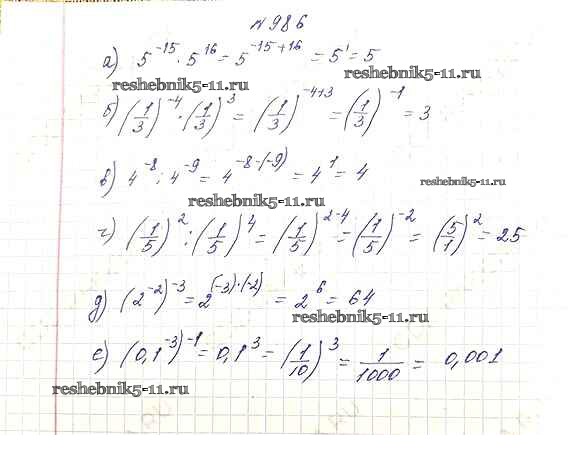 №986
а) 5^-15 · 5^16 = 5^-15+16 = 5^1 = 5
reshebnik5-11.ru reshebnik5-11.ru
б) (1/3)^-4 · (1/3)^3 = (1/3)^-4+3 = (1/3)^-1 = 3
в) 4^-8 : 4^-9 = 4^-8-(-9) = 4^1 = 4
reshebnik5-11.ru
reshebnik5-11.ru
г) (1/5)^2 : (1/5)^4 = (1/5)^2-4 = (1/5)^-2 = (5/1)^2 = 25
д) (2^-2)^-3 = 2^(-3)·(-2) = 2^6 = 64
reshebnik5-11.ru
е) (0,1^-3)^-1 = 0,1^3 = (1/10)^3 = 1/1000 = 0,001
reshebnik5-11.ru